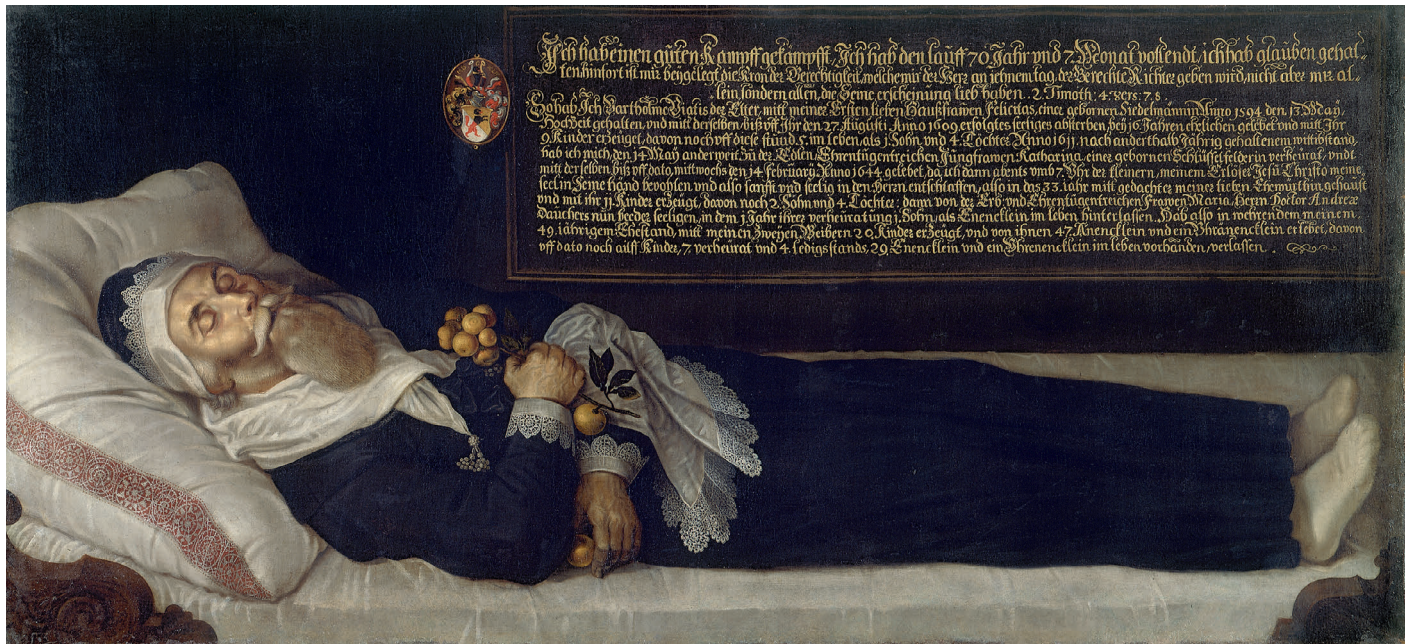 Ich hab einen guten Kampff gekämpfft, Ich hab den lauff 70 Jahr vnd 7 Monat vollendt, ich hab glauben gehal-
ten, hinfort ist mir beygelegt die Kron der Gerechtigkeit, welche mir der Herr an jehnem tag, der Gerechte Richter geben wird, nicht aber mir al-
lein sondern allen, die Seine erscheinung lieb haben. 2. Timoth: 4. Vers: 7. 8.
So hab Ich Bartholme Viatis der Elter, mitt meiner Ersten lieben Haußfrawen Felicitas, einer gebornen Anno 1594 den 13 May,
Hochzeit gehalten, vnd mitt derselben, biß vff Ihr den 27 Augusti Anno 1609 erfolgtes seeliges absterben, bey 16 Jahren ehelichen gelebet vnd mit Ihr
9 Kinder erzeuget, davon noch vff diese stund 5. im leben, als 1. Sohn, vnd 4. Töchter. Anno 1611. nach anderthalb Jährig gehaltenem wittibstand,
hab ich mich den 14 May anderweit zu der Edlen, Ehrentugentreichen Jungfrawen Katharina, einer gebornen Schlüsselfelderin verheurat, vndt
mit derselben biß vff dato, mittwochs den 14 february Anno 1644 gelebet, da ich dann abents vmb 7. Vhr der kleinern, meinem Erlöser Jesu Christo meine
seel in Seine händ bevohlen, vnd also sanfft vnd seelig in den Herrn entschlaffen, also in das 33. iahr mitt gedachter meiner lieben Ehewürthin gehaust
vnd mit ihr 11. Kinder erzeugt, davon noch 2. Söhn vnd 4. Töchter: dann von der Erb vnd Ehrentugentreichen Frawen Maria, Herrn Doctor Andreæ
Dauchers nun beeder seeligen, in dem 1. Jahr ihrer verheuratung 1. Sohn, als Enencklein im leben hinterlassen. Hab also in wehrendem meinem
49. iährigem Ehestand, mitt meinen Zweyen Weibern 20 Kinder erzeugt, vnd von ihnen 47. Anencklein vnd ein Vhranencklein erlebet, davon
vff dato noch ailff Kinder, 7. verheurat vnd 4. ledigs stands, 29. Enencklein vnd ein Vhrenencklein im leben vorhanden, verlassen.